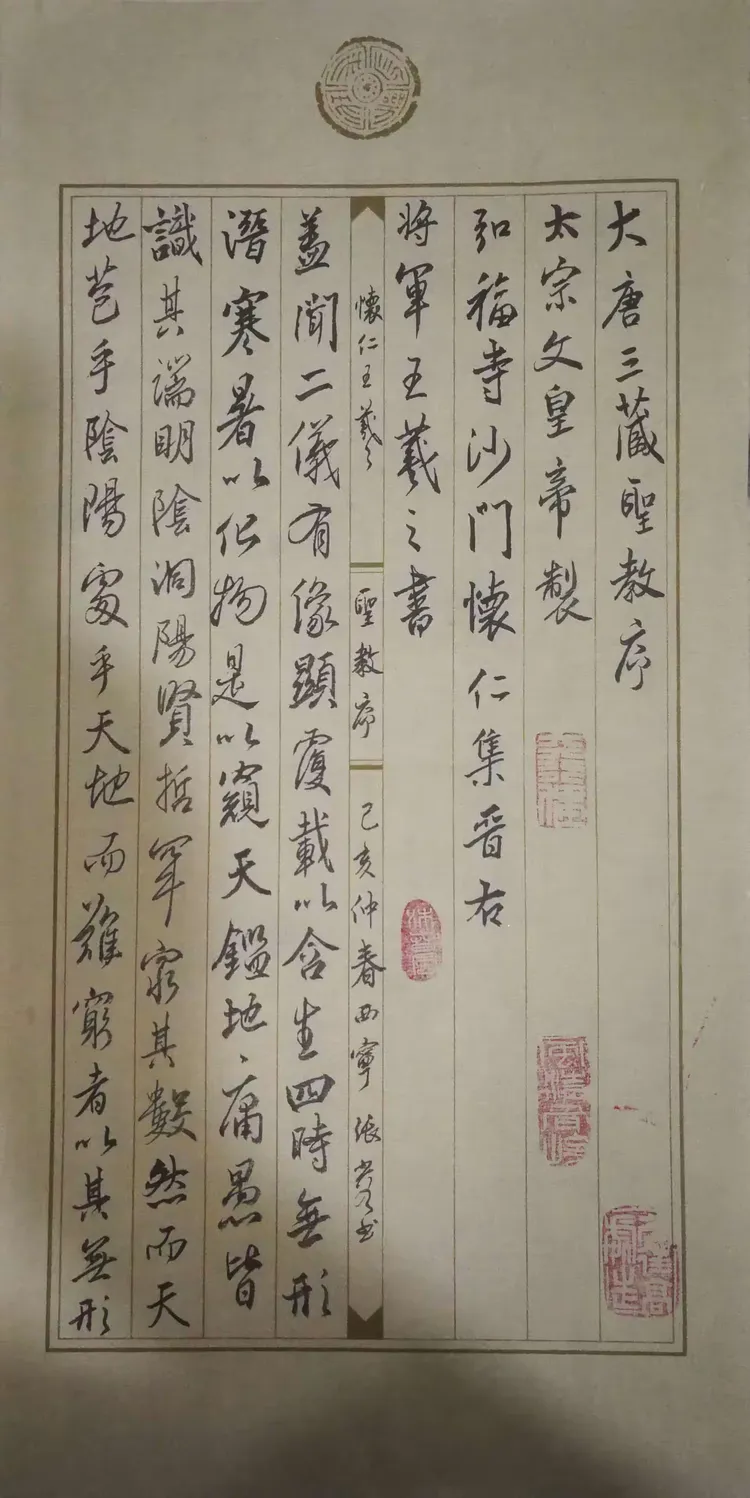 大唐三藏聖教序
太宗文皇帝製
弘福寺沙門懷仁集晉右
將軍王羲之書
懷仁王羲之
聖教序
己亥仲春西寧張書
蓋聞二儀有像顯覆載以含生四時無形
潛寒暑以化物是以窺天鑑地、庸愚皆
識其端明陰洞陽賢哲罕窮其數然而天
地苞乎陰陽處乎天地而難窮者以其無形